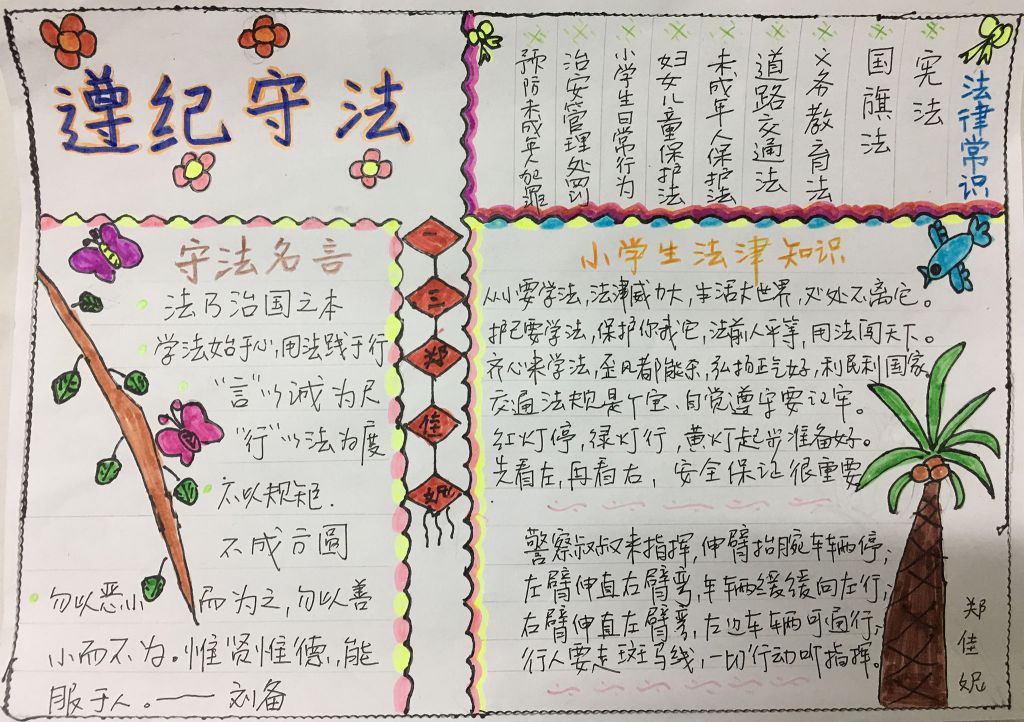 遵纪守法
法律常识
宪法
国旗法
义务教育法
道路交通法
未成年人保护法
妇女儿童保护法
小学生日常行为
治安管理处罚
预防未成年人犯罪
守法名言
法乃治国之本
学法始于心,用法践于行
“言”以诚为尺
“行”以法为度
不以规矩.
不成方圆
勿以恶小而为之,勿以善
小而不为。惟贤惟德,能
服于人。——刘备
一
三
郑
佳
妮
小学生法津知识
从小要学法,法津威力大,生活大世界,处处不离它。
护己要学法,保护你我它,法前人平等,用法闯天下。
齐心来学法,歪风都能杀,弘扬正气好,利民利国家
交通法规是个宝、自觉遵守要记牢。
红灯停,绿灯行,黄灯起步准备好。
先看左,再看右,安全保证很重要
警察叔叔来指挥,伸臂抬腕车辆停;
左臂伸直右臂弯,车辆缓缓向左行;
右臂伸直左臂弯,左边车辆可通行;
行人要走斑马线,一切行动听指挥。
郑佳妮